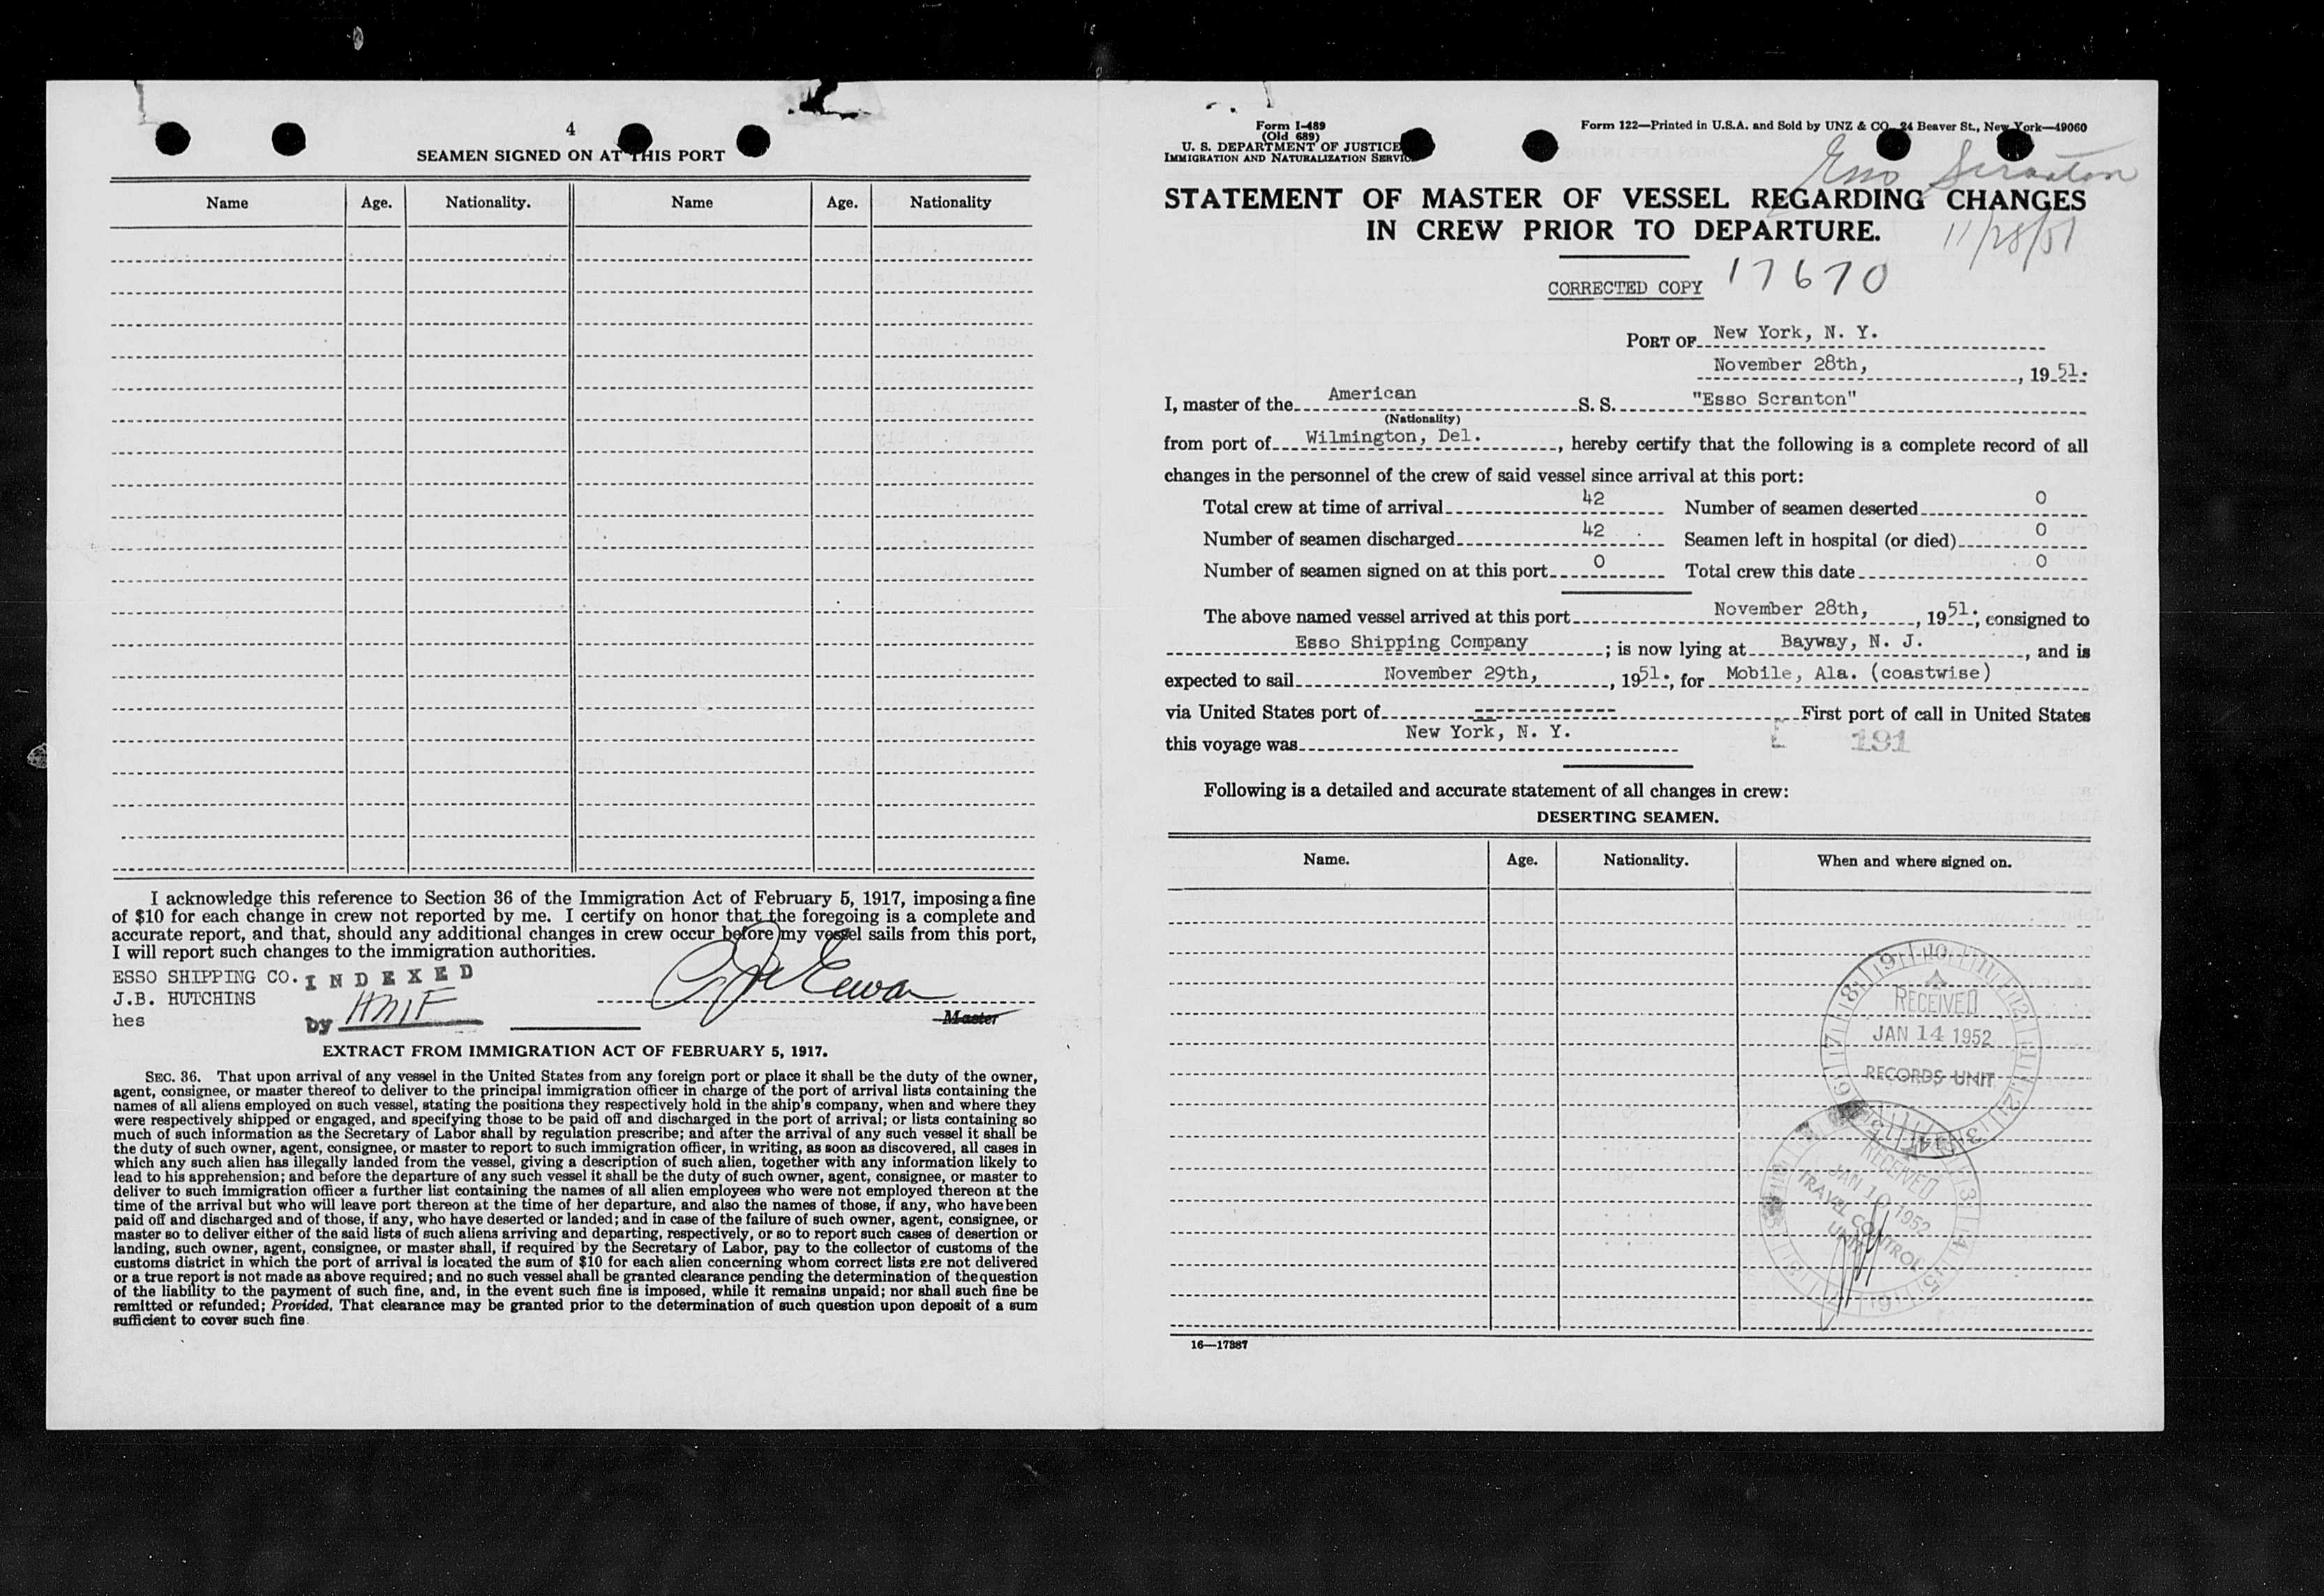 4
SEAMEN SIGNED ON AT THIS PORT
Name Age. Nationality. Name Age. Nationality
I acknowledge this reference to Section 36 of the Immigration Act of February 5, 1917, imposing a fine
of $10 for each change in crew not reported by me. I certify on honor that the foregoing is a complete and
accurate report, and that, should any additional changes in crew occur before my vessel sails from this port,
I will report such changes to the immigration authorities.
ESSO SHIPPING CO. INDEXED
J.B. HUTCHINS
hes by
Master
EXTRACT FROM IMMIGRATION ACT OF FEBRUARY 5, 1917.
SEC. 36. That upon arrival of any vessel in the United States from any foreign port or place it shall be the duty of the owner,
agent, consignee, or master thereof to deliver to the principal immigration officer in charge of the port of arrival lists containing the
names of all aliens employed on such vessel, stating the positions they respectively hold in the ship's company, when and where they
were respectively shipped or engaged, and specifying those to be paid off and discharged in the port of arrival; or lists containing so
much of such information as the Secretary of Labor shall by regulation prescribe; and after the arrival of any such vessel it shall be
the duty of such owner, agent, consignee, or master to report to such immigration officer, in writing, as soon as discovered, all cases in
which any such alien has illegally landed from the vessel, giving a description of such alien, together with any information likely to
lead to his apprehension; and before the departure of any such vessel it shall be the duty of such owner, agent, consignee, or master to
deliver to such immigration officer a further list containing the names of all alien employees who were not employed thereon at the
time of the arrival but who will leave port thereon at the time of her departure, and also the names of those, if any, who have been
paid off and discharged and of those, if any, who have deserted or landed; and in case of the failure of such owner, agent, consignee, or
master so to deliver either of the said lists of such aliens arriving and departing, respectively, or so to report such cases of desertion or
landing, such owner, agent, consignee, or master shall, if required by the Secretary of Labor, pay to the collector of customs of the
customs district in which the port of arrival is located the sum of $10 for each alien concerning whom correct lists are not delivered
or a true report is not made as above required; and no such vessel shall be granted clearance pending the determination of the question
of the liability to the payment of such fine, and, in the event such fine is imposed, while it remains unpaid; nor shall such fine be
remitted or refunded; Provided, That clearance may be granted prior to the determination of such question upon deposit of a sum
sufficient to cover such fine.
Form I-489
(Old 689)
U. S. DEPARTMENT OF JUSTICE
IMMIGRATION AND NATURALIZATION SERVICE
Form 122—Printed in U.S.A. and Sold by UNZ & CO., 24 Beaver St., New York—49060
Esso Scranton
STATEMENT OF MASTER OF VESSEL REGARDING CHANGES
IN CREW PRIOR TO DEPARTURE.
11/28/51
CORRECTED COPY 17670
PORT OF New York, N. Y.
November 28th, , 19 51.
I, master of the American S. S. "Esso Scranton"
(Nationality)
from port of Wilmington, Del. , hereby certify that the following is a complete record of all
changes in the personnel of the crew of said vessel since arrival at this port:
Total crew at time of arrival 42 Number of seamen deserted 0
Number of seamen discharged 42 Seamen left in hospital (or died) 0
Number of seamen signed on at this port 0 Total crew this date 0
The above named vessel arrived at this port November 28th, , 1951., consigned to
Esso Shipping Company ; is now lying at Bayway, N. J. , and is
expected to sail November 29th, , 1951., for Mobile, Ala. (coastwise)
via United States port of ------------ First port of call in United States
this voyage was New York, N. Y.
191
Following is a detailed and accurate statement of all changes in crew:
DESERTING SEAMEN.
Name. Age. Nationality. When and where signed on.
RECEIVED
JAN 14 1952
RECORDS UNIT
RECEIVED
JAN 10 1952
TRAVEL CONTROL
UNIT
16—17387